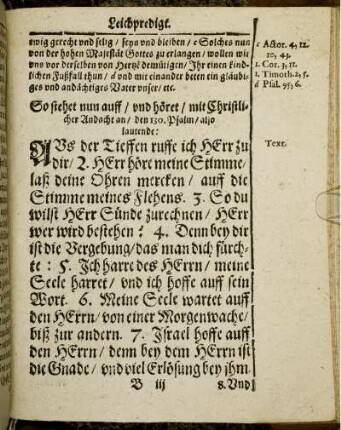 Leichpredigt.
ewig gerecht vnd selig / seyn vnd bleiben / c Solches nun
von der hohen Majestät Gottes zu erlangen / wollen wir
vns vor derselben von Hertzē demütigen / Ihr einen kind-
lichen Fußfall thun / d vnd mit einander beten ein gläubi-
ges vnd andächtiges Vater vnser / etc.
c Actor. 4, 12.
10, 43.
1. Cor. 3, 11.
1. Timoth. 2, 5.
d Psal. 95, 6.
So stehet nun auff / vnd höret / mit Christli-
cher Andacht an / den 130. Psalm / also
lautende:
Text.
AVs der Tieffen ruffe ich HErr zu
dir / 2. HErr höre meine Stimme /
laß deine Ohren mercken / auff die
Stimme meines Flehens. 3. So du
wilst HErr Sünde zurechnen / HErr
wer wird bestehen? 4. Denn bey dir
ist die Vergebung / das man dich fürch-
te: 5. Ich harre des HErrn / meine
Seele harret / vnd ich hoffe auff sein
Wort. 6. Meine Seele wartet auff
den HErrn / von einer Morgenwache /
biß zur andern. 7. Israel hoffe auff
den HErrn / denn bey dem HErrn ist
die Gnade / vnd viel Erlösung bey jhm.
B iij
8. Vnd